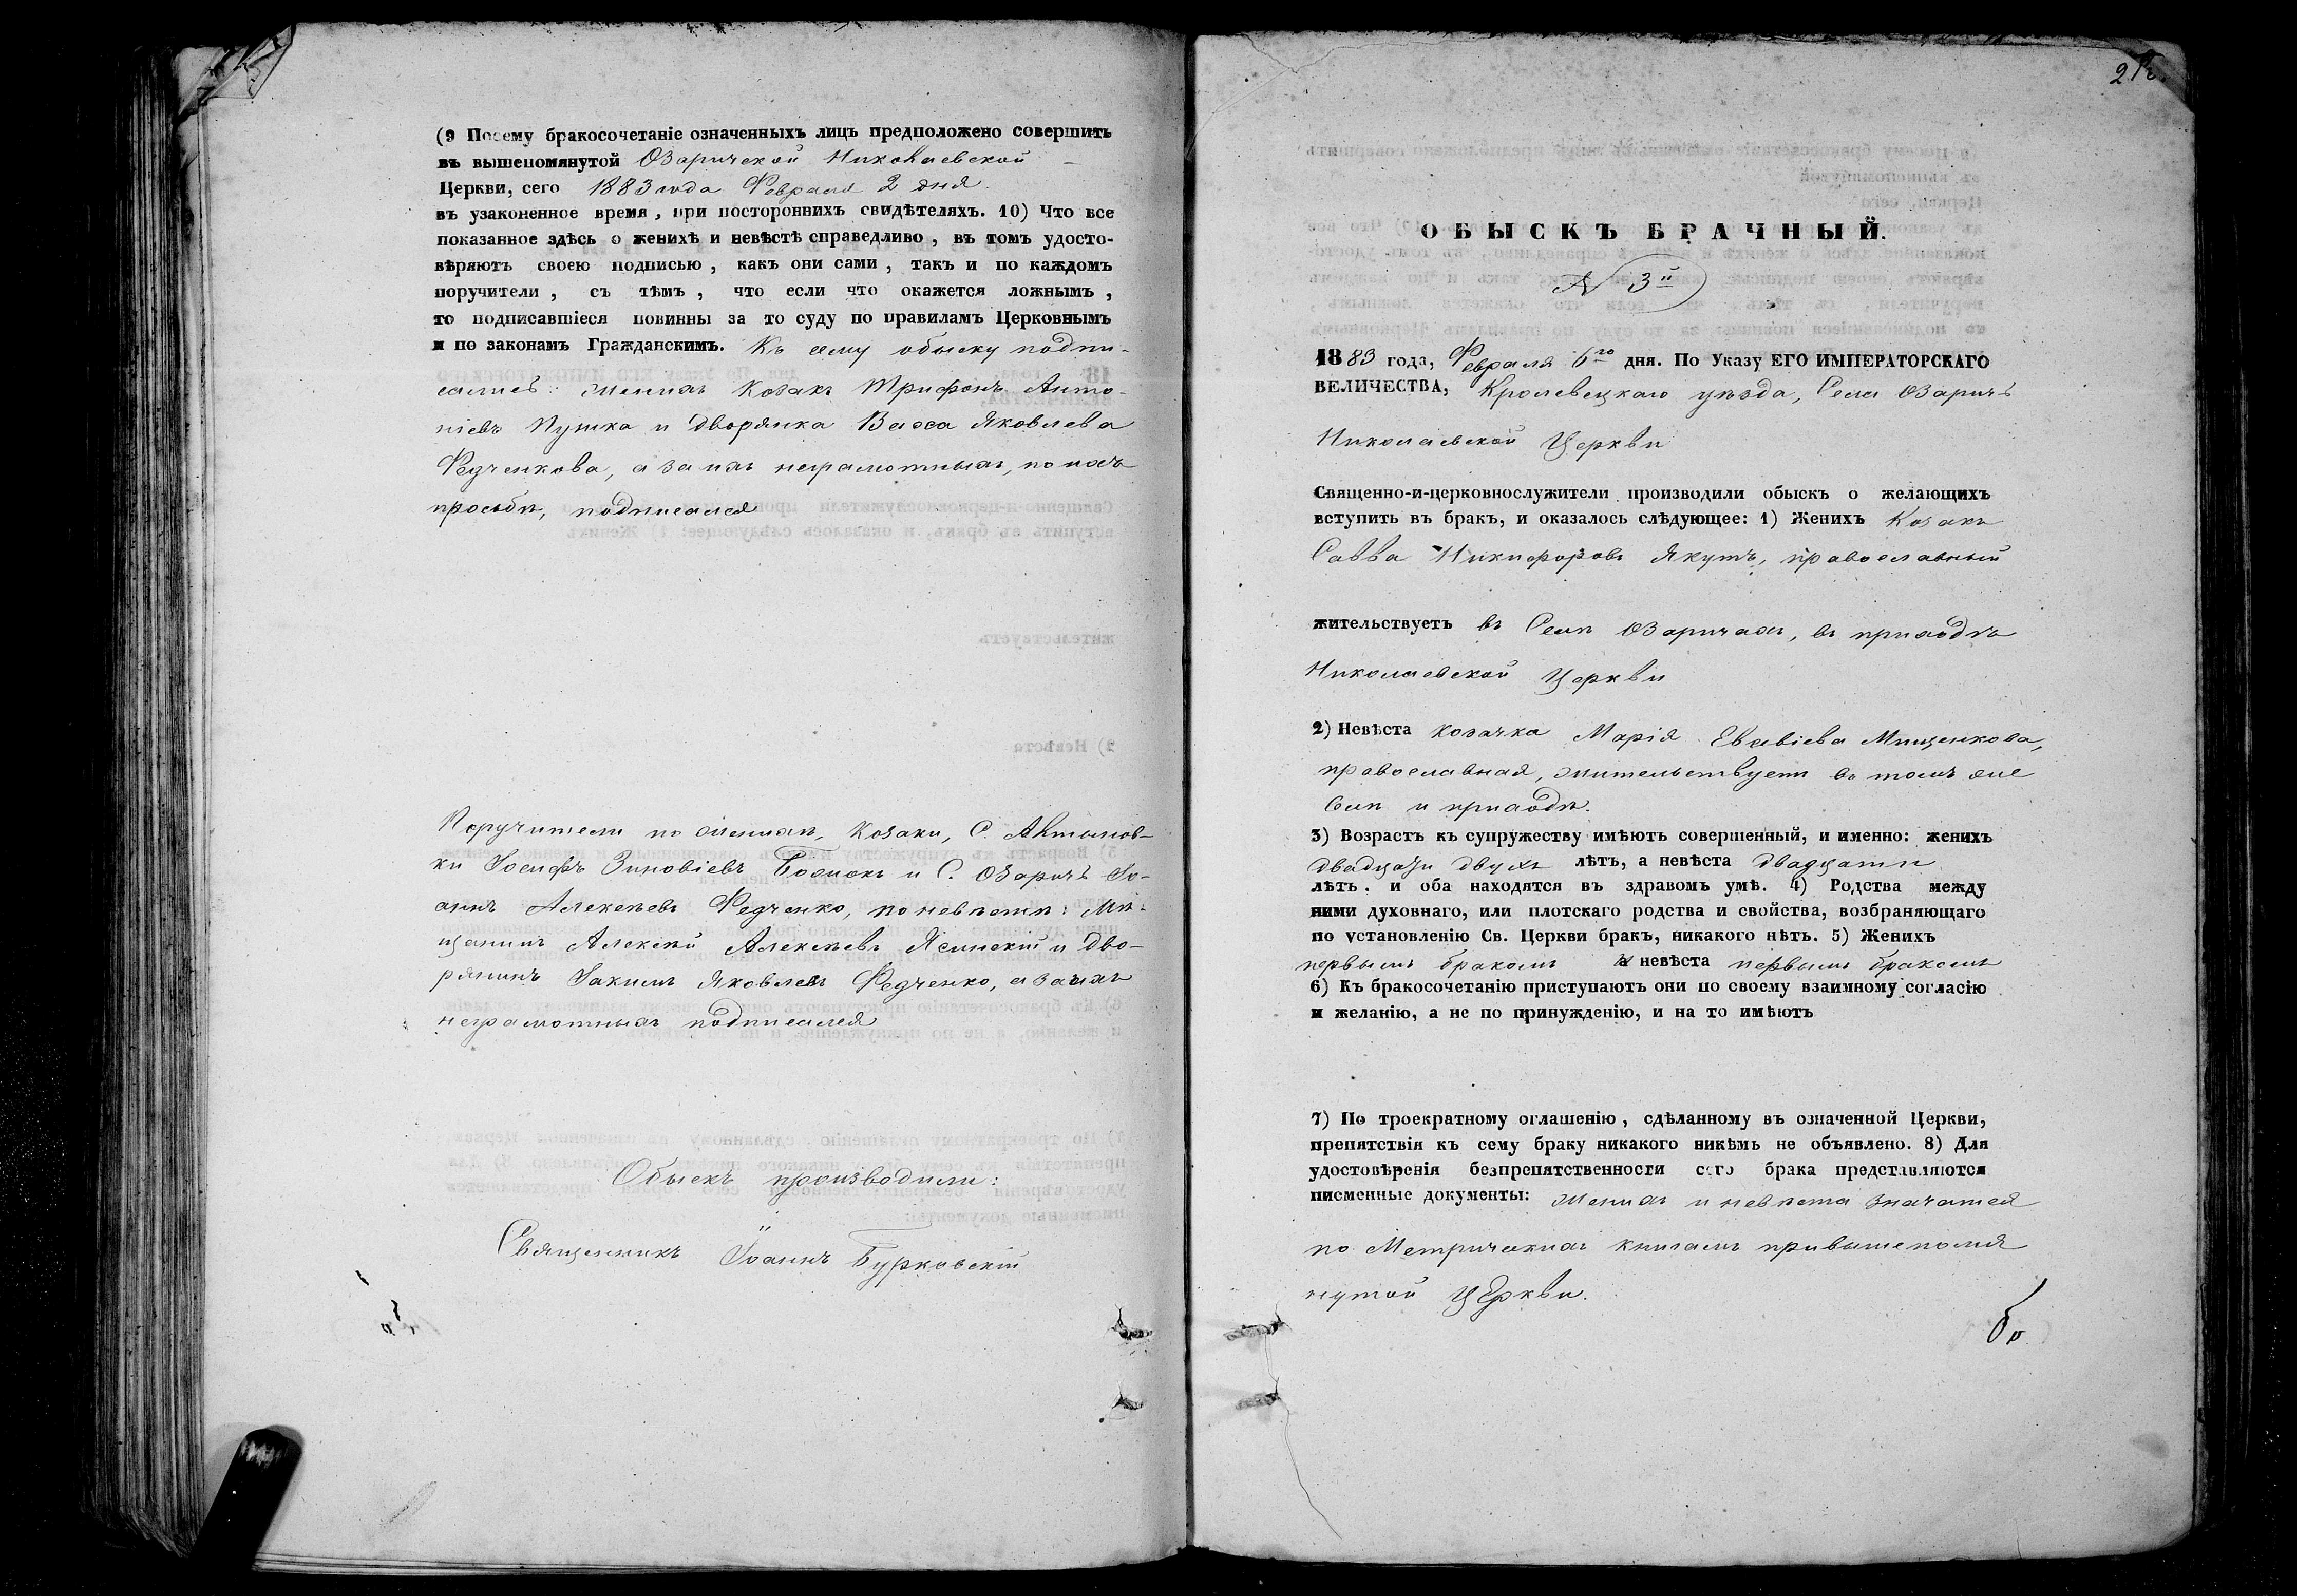 (9 Посему бракосочетаніе означенныхъ лицъ предположено совершить
въ вышепомянутой Озаричской Николаевской
Церкви, сего 1883 года Февраля 2 дня.
въ узаконенное время, при постороннихъ свидѣтеляхъ. 10) Что все
показанное здѣсь о женихѣ и невѣстѣ справедливо, въ томъ удосто-
вѣряютъ своею подписью, какъ они сами, такъ и по каждомъ
поручители, съ тѣмъ, что если что окажется ложнымъ,
то подписавшіеся повинны за то суду по правиламъ Церковнымъ
и по законамъ Гражданскимъ. Къ сему обыску подпи-
сались: женихъ Козакъ Трифонъ Анто-
ніевъ Пушка и дворянка Васса Яковлева
Федченкова, а за ихъ неграмотныхъ, по ихъ
просьбѣ, подписался
Поручители по женихѣ, Козаки, С. Алтынов-
ки Іосифъ Зиновіевъ и С. Озаричъ Іо-
аннъ Алексѣевъ Федченко, по невѣстѣ: Мѣ-
щанинъ Алексѣй Алексѣевъ Ясинскій и дво-
рянинъ Іакимъ Яковлевъ Федченко, а за ихъ
неграмотныхъ подписался
Обыскъ производили:
Священникъ Іоаннъ Бурковскій
ОБЫСКЪ БРАЧНЫЙ.
N 3й
1883 года, Февраля 6го дня. По Указу ЕГО ИМПЕРАТОРСКАГО
ВЕЛИЧЕСТВА, Кролевецкаго уѣзда, Села Озаричъ
Николаевской Церкви
Священно-и-церковнослужители производили обыскъ о желающихъ
вступить въ бракъ, и оказалось слѣдующее: 1) Женихъ Козакъ
Савва Никифоровъ Якутъ, православный
жительствуетъ въ Селѣ Озаричахъ, въ приходѣ
Николаевской Церкви
2) Невѣста козачка Марія Мищенкова,
православная, жительствуетъ въ томъ же
Селѣ и приходѣ.
3) Возрастъ къ супружеству имѣютъ совершенный, и именно: женихъ
двадцати двухъ лѣтъ, а невѣста двадцати
лѣтъ. и оба находятся въ здравомъ умѣ. 4) Родства между
ними духовнаго, или плотскаго родства и свойства, возбраняющаго
по установленію Св. Церкви бракъ, никакого нѣтъ. 5) Женихъ
первымъ бракомъ а невѣста первымъ бракомъ
6) Къ бракосочетанію приступаютъ они по своему взаимному согласію
и желанію, а не по принужденію, и на то имѣютъ
7) По троекратному оглашенію, сдѣланному въ означенной Церкви,
препятствія къ сему браку никакого никѣмъ не объявлено. 8) Для
удостовѣренія безпрепятственности сего брака представляются
писменные документы: Женихъ и невѣста значатся
по Метрическимъ книгамъ при вышепомя
нутой Церкви.